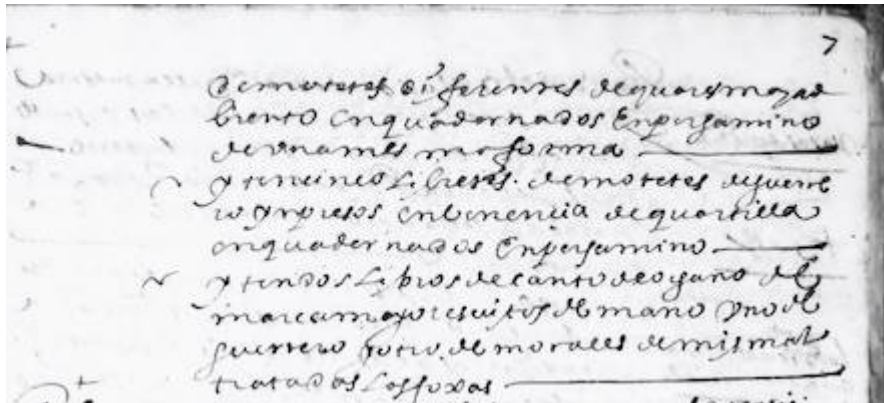 7
de motetes diferentes de quaresma y ad
biento enquadernados en pergamino
de una mesma forma
yten cinco libretes de motetes de guerre
ro ynpresos en benencia de quartilla
enquadernados en pergamino
yten dos libros de canto de organo de
marca mayor escritos de mano uno de
guerrero y otro de morales de muy mal
tratadas las foxas